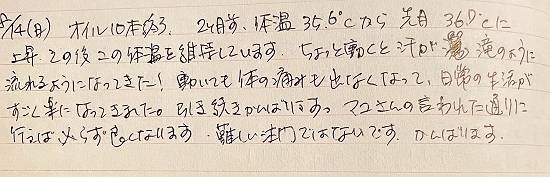 8/14(日) オイル10本終了. 2ヶ月前、体温 35.6℃から 先月 36.9℃に
上昇. その後この体温を維持しています. ちょっと動くと汗が 滝のように
流れるようになってきた! 動いても体の痛みも出なくなって、日常の生活が
すごく楽になってきました。引き続きがんばります。マユさんの言われた通りに
行えば必らず良くなります. 難しい法門ではないです. がんばります.